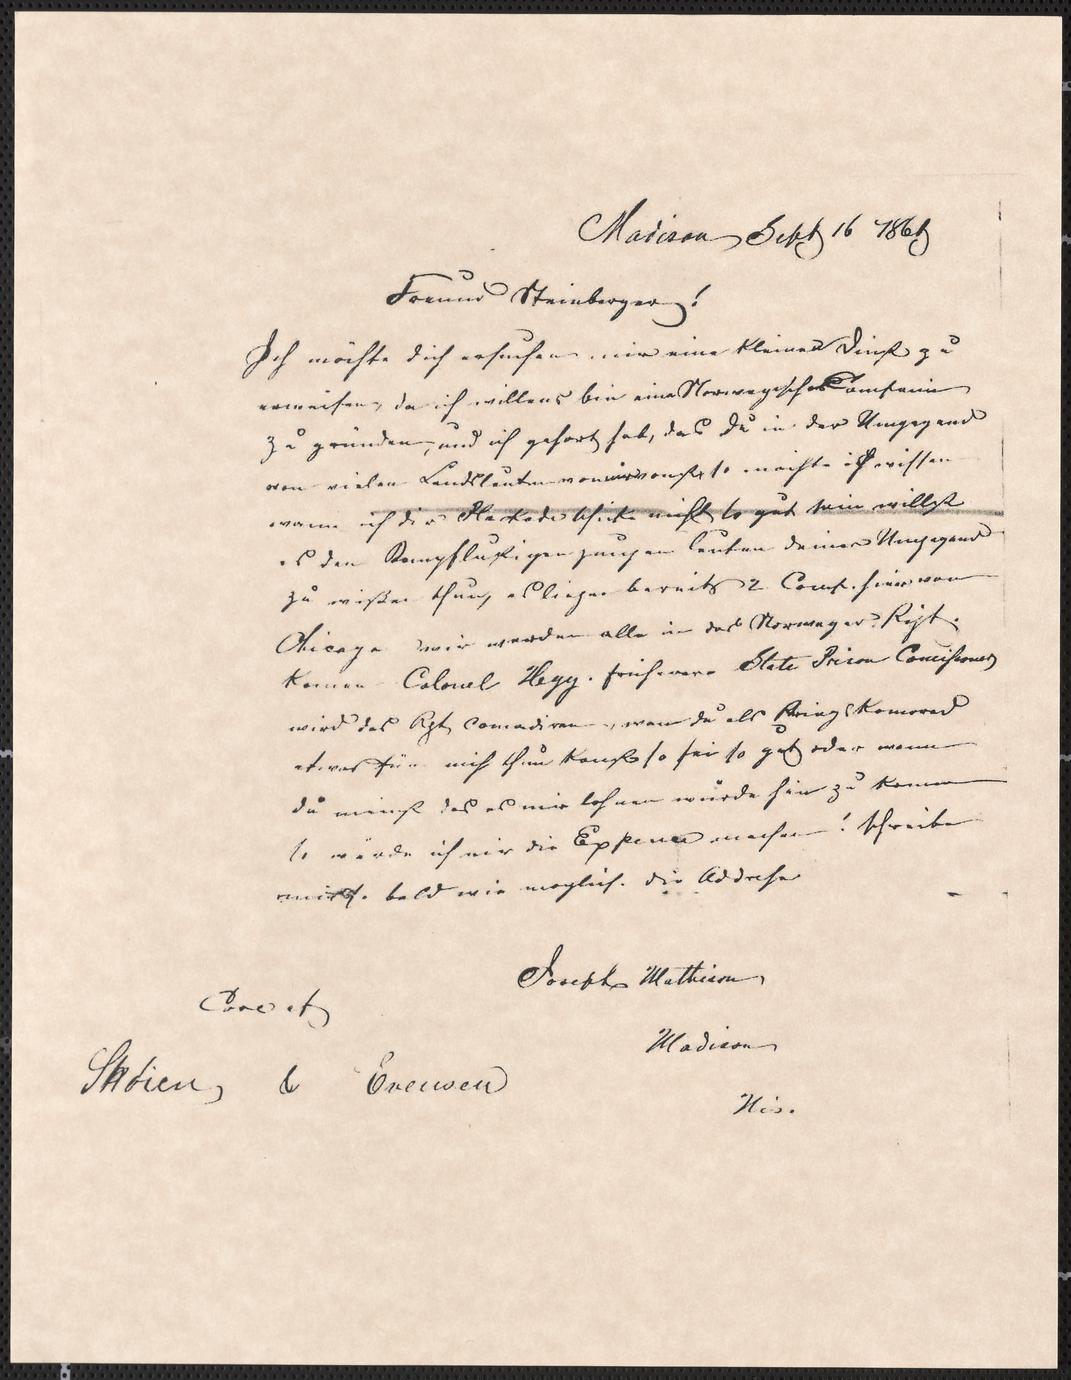 Madison Sept 16 1861
Freund Steinberger!
Ich möchte dich ersuchen mir eine kleinen Dinst zu
erweisen, da ich willens bin eine Norwegische Compenie
zu gründen, und ich gehort hab, das Du in der Umgegend
von vielen Landsleuten von mir wonst, so mochte ich wissen
wann ich dir Plackade schicke nicht so gut sein willst
es den Kampflustigen jungen leuten deiner Umgegend
zu wißen thun, es liegen bereits 2 Comp. hier von
Chicago wir werden alle in das Norweger Rigt.
komen Colonel Hegg. früherer State Prison Comissioner
wird das Rgt comadiren, wan du als Kriegskamerad
etwas für mich thun kanst so sei so gut oder wann
du meinst das es mir lohnen würde hin zu komen
so würde ich mir die Expence machen! schreibe
so bald wie moglich. die Addresse
Joseph Mathison
Care of
Madison
Skdien & Evensen
Wis.